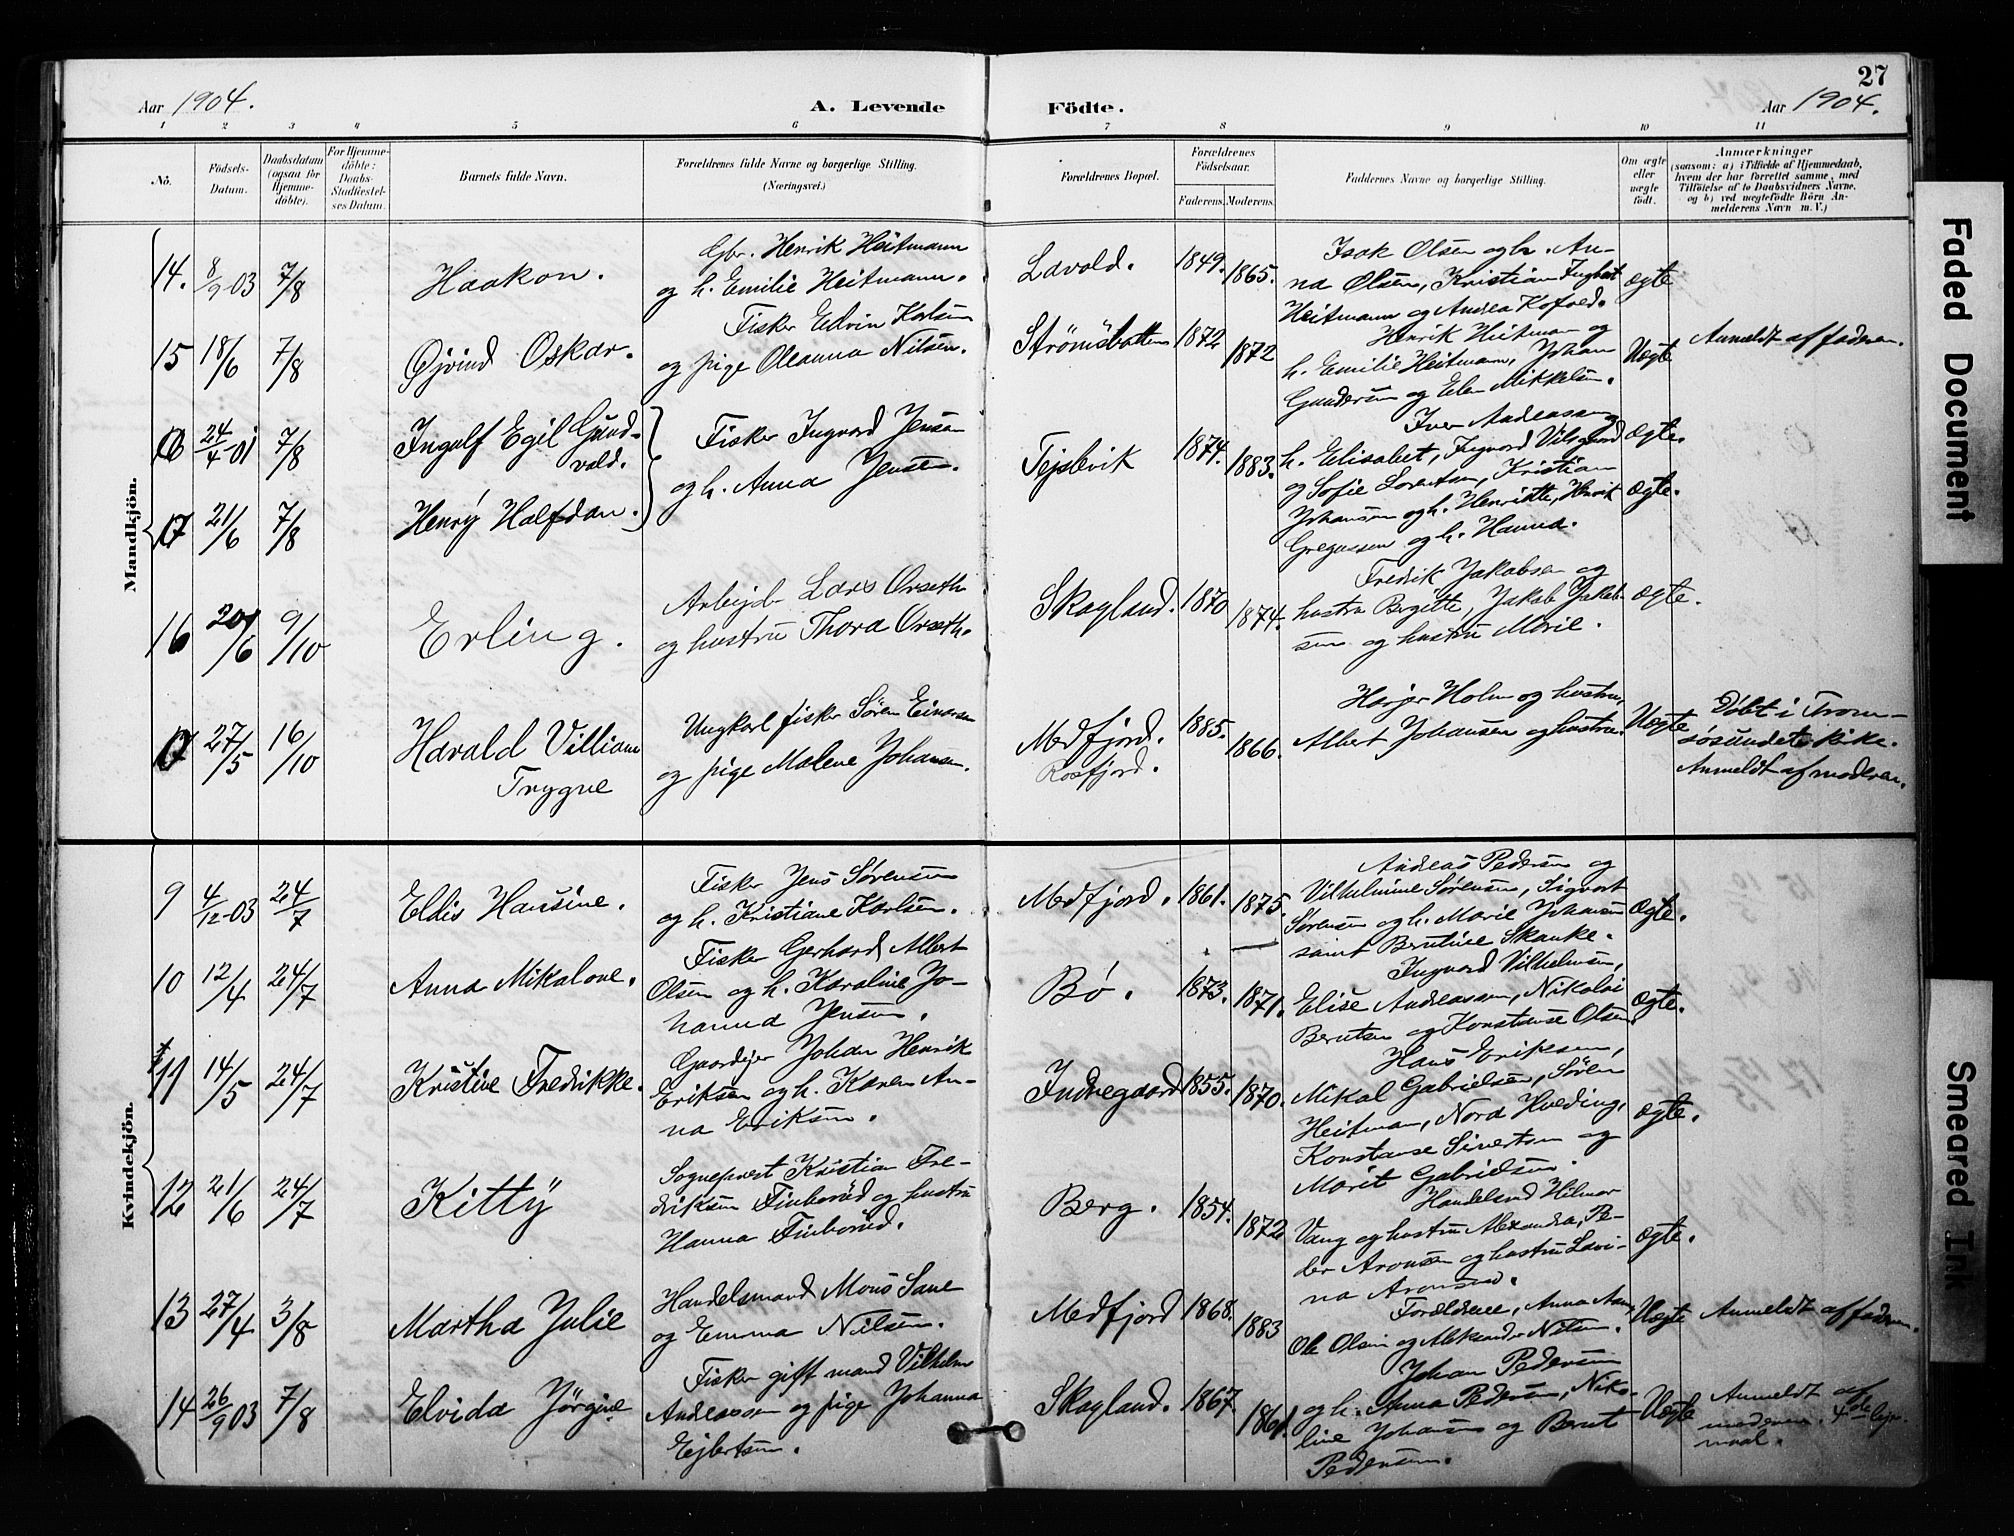 27
Aar 1904.
A. Levende Födte.
Aar 1904.
1 2 3 4 5 6 7 8 9 10 11
No.
Födsels-
Datum.
Daabsdatum
(ogsaa for
Hjemme-
döbte).
For Hjemme-
döbte:
Daabs-
Stadfæstel-
ses Datum.
Barnets fulde Navn.
Forældrenes fulde Navne og borgerlige Stilling.
(Næringsvei.)
Forældrenes Bopæl.
Forældrenes
Födselsaar.
Faderens. Moderens.
Faddernes Navne og borgerlige Stilling.
Om ægte
eller
uægte
födt.
Anmærkninger
(saasom: a) i Tilfælde af Hjemmedaab,
hvem der har forrettet samme, med
Tilföielse af to Daabsvidners Navne,
og b) ved uægtefödte Börn An-
melderens Navn m. V.)
Mandkjön.
14. 8/9 03 7/8 Haakon.
Gbr. Henrik Heitmann
og h. Emilie Heitmann.
Lavold. 1849. 1865.
Isak Olsen og h. An-
na Olsen, Kristian Ingbart
Heitmann og Andrea Kofoed.
Ægte
15 18/6 7/8 Øjvind Oskar.
Fisker Edvin Karlsen
og pige Oleanna Nilsen.
Strömsbotten 1872 1872
Henrik Heitman og
h. Emilie Heitmann, Johan
Gundersen og Elen Mikkelsen.
Uægte
Anmeldt af faderen.
24/4 01 7/8 Ingolf Egil Gund-
vald.
Fisker Ingvard Jensen
og h. Anna Jensen.
Tejstevik 1874. 1883.
Iver Andreassen og
h. Elisabet, Ingvard Vilsgaard
og Sofie Lorentsen, Kristian
Johansen og h. Henriette, Henrik
Gregussen og h. Hanna.
Ægte.
21/6 7/8 Henrÿ Halfdan.
Ægte.
16 20/6 9/10 Erling.
Arbejd. Lars Orseth
og hustru Thora Orseth.
Skagland. 1870 1874.
Fredrik Jakobsen og
hustru Bergitte, Jakob Jakob-
sen og hustru Marie.
Ægte.
27/5 16/10 Harald Villiam
Trygve
Ungkarl fisker Sören Einarsen
og pige Malene Johansen.
Medfjord.
Rosfjord.
1885. 1866.
Hasjer Holm og hustru,
Albert Johansen og hustru.
Uægte
Döbt i Trom-
søsundets kirke.
Anmeldt af moderen.
Kvindekjön.
9 4/12 03 24/7 Eldis Hansine.
Fisker Jens Sørensen
og h. Kristiane Karlsen.
Medfjord. 1861. 1875.
Andreas Pedersen og
Vilhelmine Sørensen, Sigvart
Sørensen og h. Marie Johansen
samt Berntine Skanke.
Ægte.
10 12/4 24/7 Anna Mikalone.
Fisker Gerhard Albert
Olsen og h. Karoline Jo-
hanna Jensen.
Bø. 1873. 1871.
Ingvard Vilhelmsen,
Elise Andreassen, Nikolai
Berntsen og Konstanse Olsen.
Ægte.
11 14/5 24/7 Kristine Fredrikke.
Gaardejer Johan Henrik
Eriksen og h. Karen An-
na Eriksen.
Indregaard 1855. 1870.
Hans Eriksen,
Mikal Gabrielsen, Sören
Heitman, Nora Hveding,
Konstanse Sivertsen og
Marit Gabrielsen.
Ægte.
12 21/6 24/7 Kittÿ
Sogneprest Kristian Fre-
driksen Finborüd og hustru
Hanna Finborüd.
Berg. 1854. 1872
Handelsmd Hilmar
Vang og hustru Alexandra, Pe-
der Aronsen og hustru Lovi-
na Aronsen.
Ægte.
13 27/4 3/8 Martha Julie
Handelsmand Mons Sane
og Emma Nilsen.
Medfjord 1868. 1883
Forældrene, Anna Aas,
Ole Olsen og Aleksander Nilsen.
Uægte
Anmeldt af faderen.
14 26/9 03 7/8 Elvida Jørgine
Fisker gift mand Vilhelm
Andreassen og pige Johanna
Ejbertsen.
Skagland. 1867. 1861.
Johan Pedersen
og h. Anna Pedersen, Niko-
line Johansen og Bernt
Pedersen.
Uægte
Anmeldt af
moderen. 4de lejr-
maal.
Faded Document
Smeared Ink